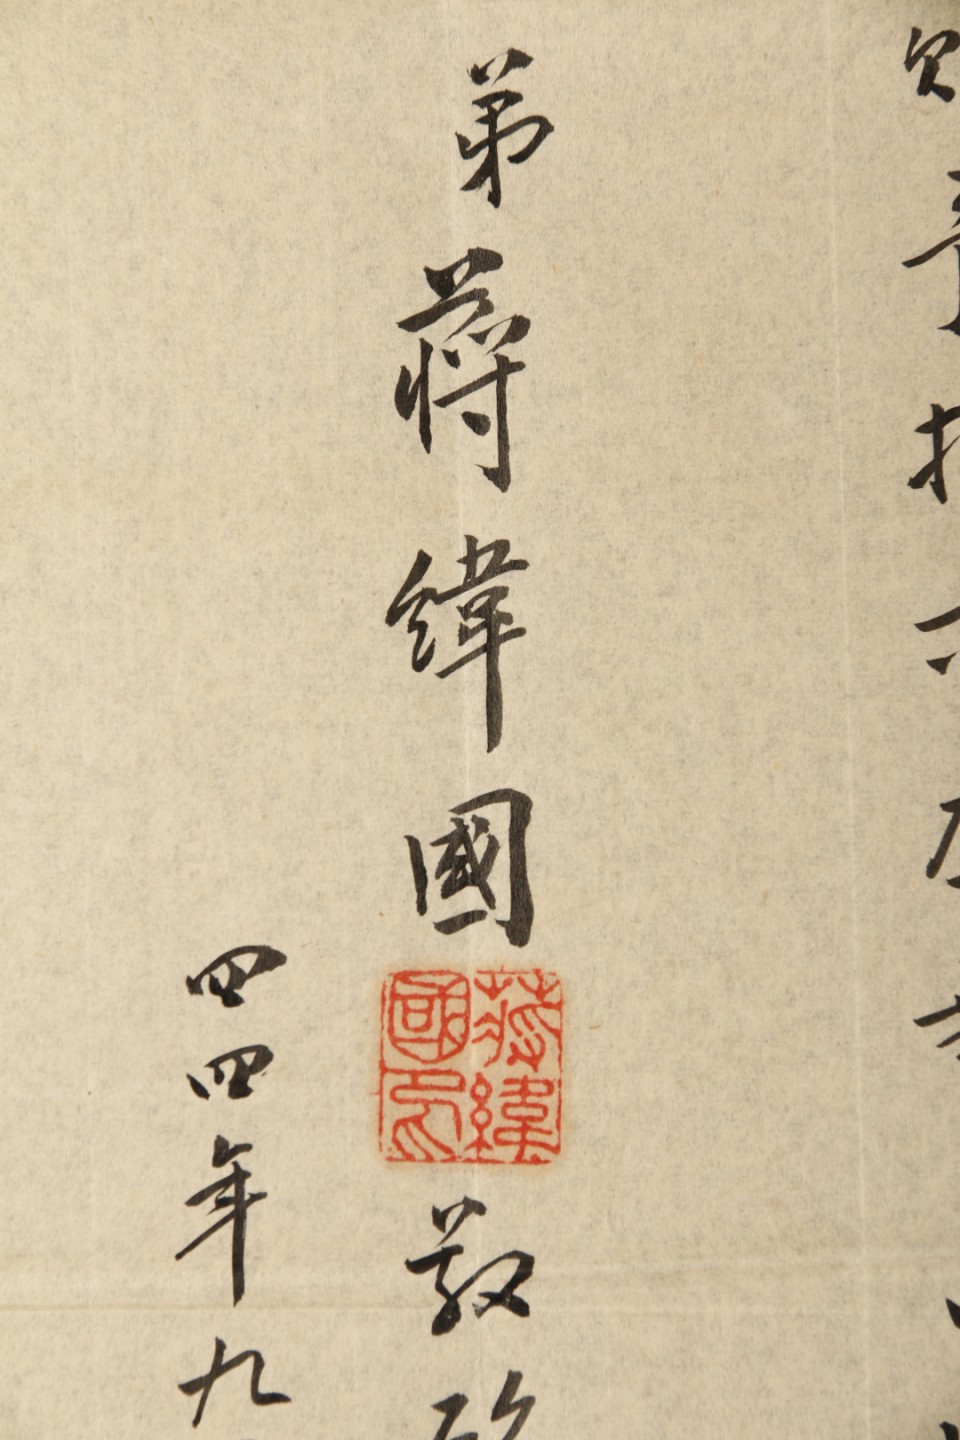 弟蔣緯國
蔣緯國印
敬啓
四四年九